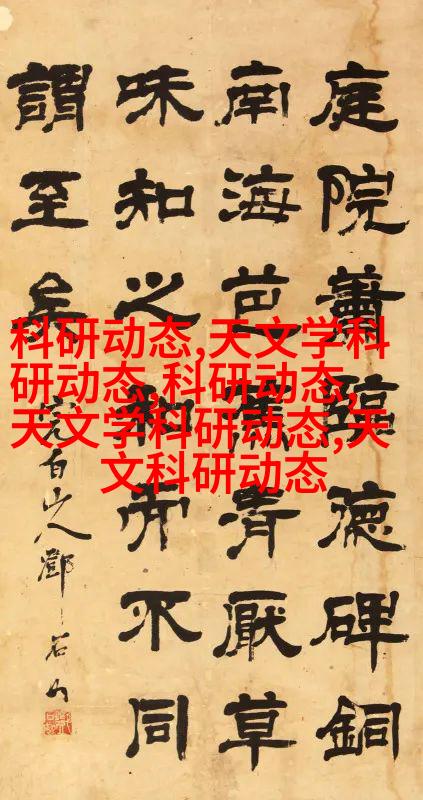 庭院蕭臨德碑銅
南海芭蕉青厭草
味知之和而不同
謂至矣
完白山人鄧石如
科研动态,天文学科
研动态,科研动态,
天文学科研动态,天
文科研动态